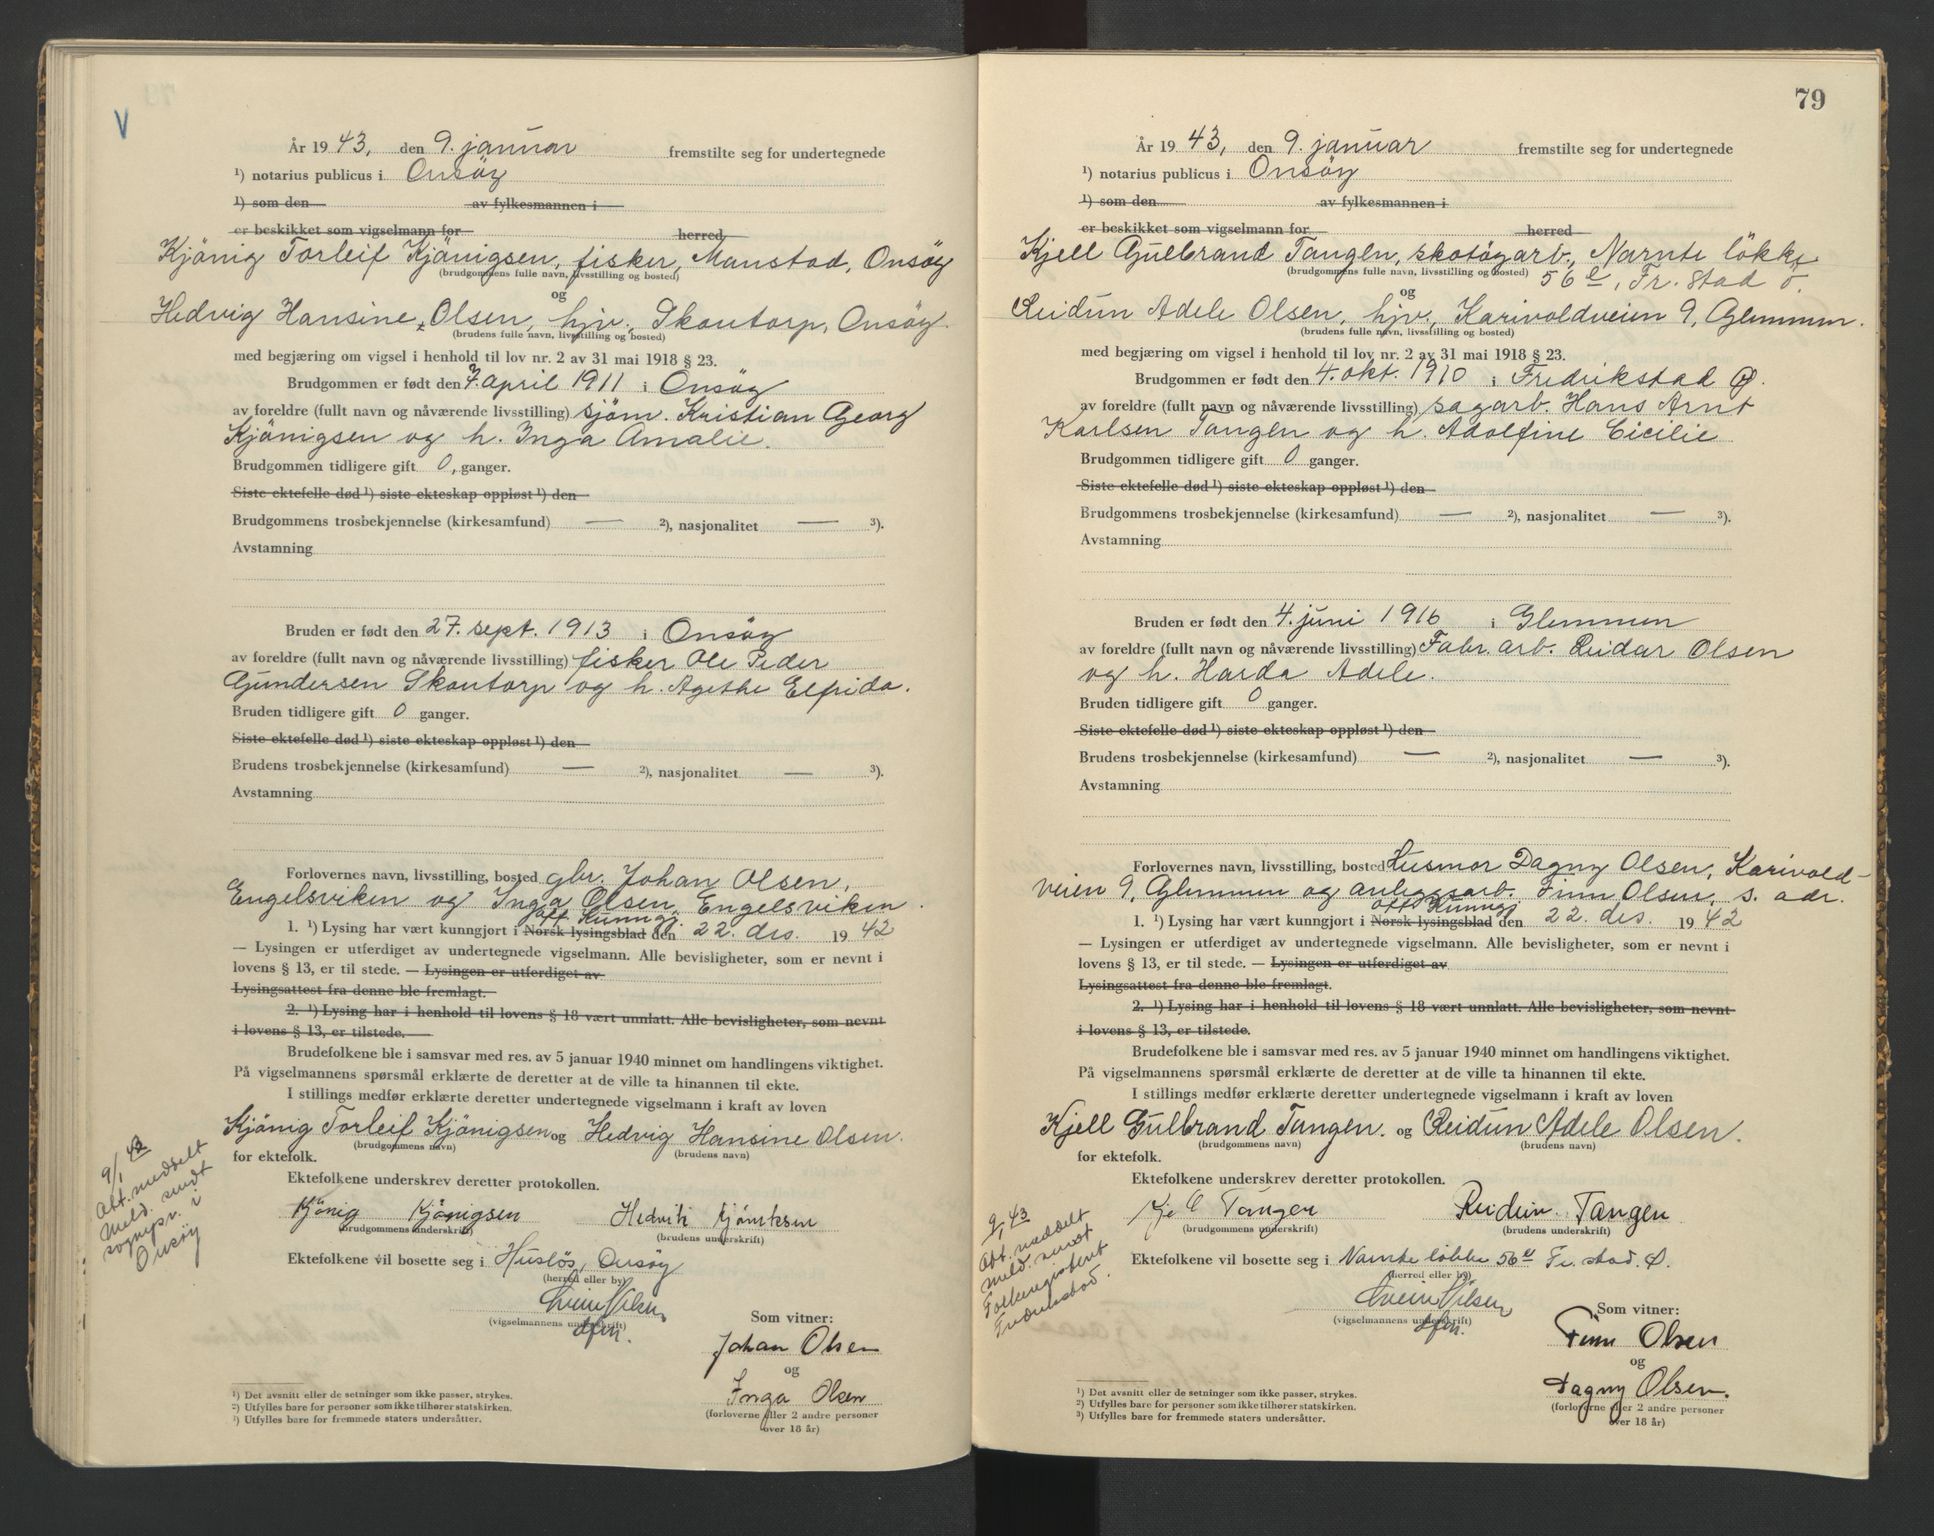 V
År 1943, den 9. januar fremstilte seg for undertegnede
¹) notarius publicus i Onsøy
¹) som den av fylkesmannen i
er beskikket som vigselmann for herred
Kjönig Torleif Kjönigsen, fisker, Manstad, Onsøy
(brudgommens fulle navn, livsstilling og bosted)
og
Hedvig Hansine Olsen, hjv., Skautorp, Onsøy.
(brudens fulle navn, livsstilling og bosted)
med begjæring om vigsel i henhold til lov nr. 2 av 31 mai 1918 § 23.
Brudgommen er født den 7. april 1911 i Onsøy
av foreldre (fullt navn og nåværende livsstilling) sjøm. Kristian Georg
Kjönigsen og h. Inga Amalie.
Brudgommen tidligere gift 0, ganger.
Siste ektefelle død ¹) siste ekteskap oppløst ¹) den
Brudgommens trosbekjennelse (kirkesamfund) — ²), nasjonalitet — ³).
Avstamning
Bruden er født den 27. sept. 1913 i Onsøy
av foreldre (fullt navn og nåværende livsstilling) fisker Ole Peder
Gundersen Skautorp og h. Agethe Elfrida.
Bruden tidligere gift 0 ganger.
Siste ektefelle død ¹) siste ekteskap oppløst ¹) den
Brudens trosbekjennelse (kirkesamfund) — ²), nasjonalitet — ³).
Avstamning
Forlovernes navn, livsstilling, bosted gbr. Johan Olsen,
Engelsviken og Inga Olsen, Engelsviken.
off. kunngj.
1. ¹) Lysing har vært kunngjort i Norsk lysingsblad den 22. des. 1942
— Lysingen er utferdiget av undertegnede vigselmann. Alle bevisligheter, som er nevnt i
lovens § 13, er til stede. — Lysingen er utferdiget av
Lysingsattest fra denne ble fremlagt.
2. ¹) Lysing har i henhold til lovens § 18 vært unnlatt. Alle bevisligheter, som nevnt
i lovens § 13, er tilstede.
Brudefolkene ble i samsvar med res. av 5 januar 1940 minnet om handlingens viktighet.
På vigselmannens spørsmål erklærte de deretter at de ville ta hinannen til ekte.
I stillings medfør erklærte deretter undertegnede vigselmann i kraft av loven
Kjönig Torleif Kjönigsen og Hedvig Hansine Olsen.
(brudgommens navn) (brudens navn)
for ektefolk.
Ektefolkene underskrev deretter protokollen.
Kjönig Kjönigsen
(brudgommens underskrift) (brudens underskrift)
Ektefolkene vil bosette seg i Huslös, Onsøy
(herred eller by)
(vigselmannens underskrift)
Som vitner:
Johan Olsen
og
Inga Olsen
(forloverne eller 2 andre personer
over 18 år)
9/1 43
Att. meddelt
Meld. sendt
sognepr. i
Onsøy
¹) Det avsnitt eller de setninger som ikke passer, strykes.
²) Utfylles bare for personer som ikke tilhører statskirken.
³) Utfylles bare for fremmede staters undersåtter.
79
År 1943, den 9. januar fremstilte seg for undertegnede
¹) notarius publicus i Onsøy
¹) som den av fylkesmannen i
er beskikket som vigselmann for herred
Kjell Gulbrand Tangen, skotøyarb., Narnte løkke
(brudgommens fulle navn, livsstilling og bosted) 56 e, Fr.stad Ø.
og
Reidun Adele Olsen, hjv., Karivoldveien 9, Glemmen.
(brudens fulle navn, livsstilling og bosted)
med begjæring om vigsel i henhold til lov nr. 2 av 31 mai 1918 § 23.
Brudgommen er født den 4. okt. 1910 i Fredrikstad Ø.
av foreldre (fullt navn og nåværende livsstilling) sagarb. Hans Arnt
Karlsen Tangen og h. Adolfine Cicilie
Brudgommen tidligere gift 0 ganger.
Siste ektefelle død ¹) siste ekteskap oppløst ¹) den
Brudgommens trosbekjennelse (kirkesamfund) — ²), nasjonalitet — ³).
Avstamning
Bruden er født den 4. juni 1916 i Glemmen
av foreldre (fullt navn og nåværende livsstilling) Fabr. arb. Reidar Olsen
og h. Harda Adele.
Bruden tidligere gift 0 ganger.
Siste ektefelle død ¹) siste ekteskap oppløst ¹) den
Brudens trosbekjennelse (kirkesamfund) — ²), nasjonalitet — ³).
Avstamning
Forlovernes navn, livsstilling, bosted Husmor Dagny Olsen, Karivold-
veien 9, Glemmen og anleggsarb. Finn Olsen, s. adr.
off. kunngj.
1. ¹) Lysing har vært kunngjort i Norsk lysingsblad den 22. des. 1942
— Lysingen er utferdiget av undertegnede vigselmann. Alle bevisligheter, som er nevnt i
lovens § 13, er til stede. — Lysingen er utferdiget av
Lysingsattest fra denne ble fremlagt.
2. ¹) Lysing har i henhold til lovens § 18 vært unnlatt. Alle bevisligheter, som nevnt
i lovens § 13, er tilstede.
Brudefolkene ble i samsvar med res. av 5 januar 1940 minnet om handlingens viktighet.
På vigselmannens spørsmål erklærte de deretter at de ville ta hinannen til ekte.
I stillings medfør erklærte deretter undertegnede vigselmann i kraft av loven
Kjell Gulbrand Tangen. og Reidun Adele Olsen.
(brudgommens navn) (brudens navn)
for ektefolk.
Ektefolkene underskrev deretter protokollen.
Tangen Reidun Tangen
(brudgommens underskrift) (brudens underskrift)
Ektefolkene vil bosette seg i Narnte løkke 56 e Fr.stad. Ø.
(herred eller by)
(vigselmannens underskrift)
Som vitner:
Finn Olsen
og
Dagny Olsen.
(forloverne eller 2 andre personer
over 18 år)
9/1 43
Att. meddelt
Meld. sendt
Folkeregisteret
Fredrikstad.
¹) Det avsnitt eller de setninger som ikke passer, strykes.
²) Utfylles bare for personer som ikke tilhører statskirken.
³) Utfylles bare for fremmede staters undersåtter.